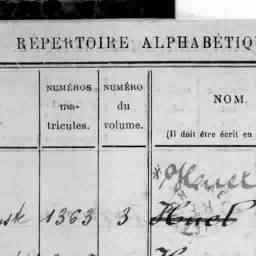 RÉPERTOIRE ALPHABÉTIQU
NUMÉROS
ma-
tricules.
NUMÉRO
du
volume.
NOM.
(Il doit être écrit en
1363 3 Huel